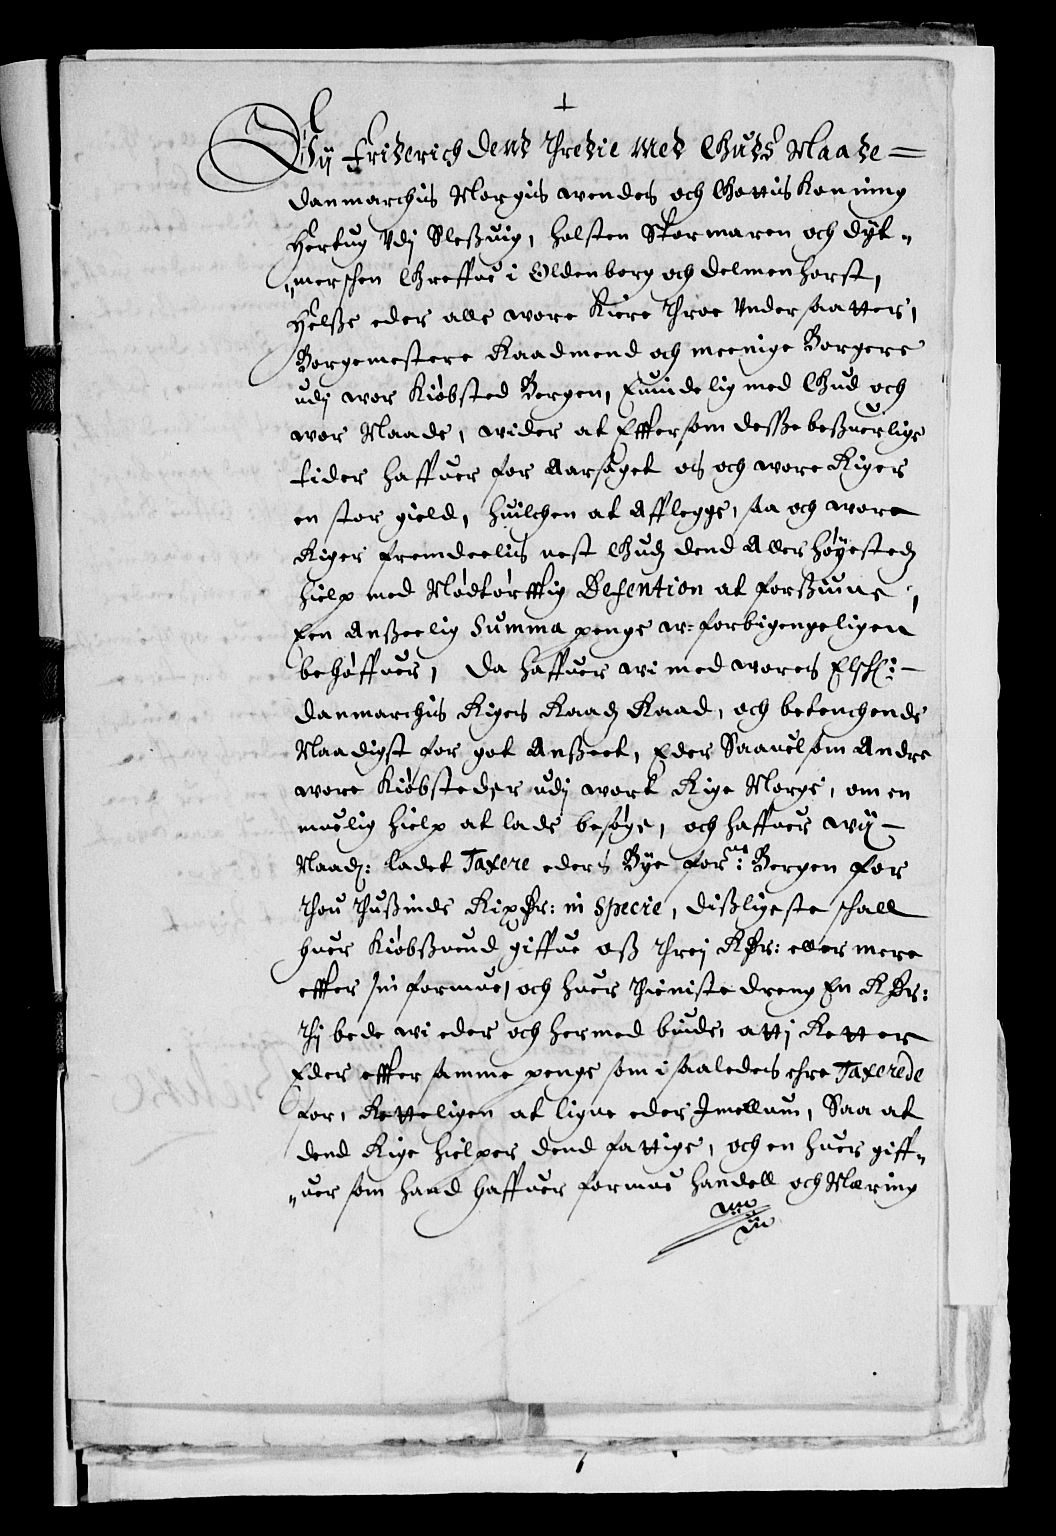 Wy Friderich dend Tredie Med Guds Naade
Danmarchis Norgis Wendes och Gottis Konning
Hertug Udj Sleßuig, Holsten Stormaren och Dyt-
merschen Greffue i Oldenborg och Delmenhorst,
Helße eder alle wore kiere throe Undersaatter,
Borgemestere Raadmend och meenige Borgere
udj wor Kiøbsted Bergen, Euindelig med Gud och
wor Naade, wider at Effttersom desße beßuerlige
tider haffuer for Aarsaget os och wore Riger
en stor gield, huilchen at Afflegge, saa och wore
Riger fremdeelis nest Gudz dend Allerhøyestedz
hielp med Nødtørfftig Defention at forßuare,
Een Anßeelig Summa penge w=forbigengeligen
behøffues, Da haffuer wi med wores Elschl:
Danmarchis Rigers Raadz Raad, och betenchende
Naadigst for got Anßeet, Eder Saauelsom Andre
wore Kiøbsteder udj wort Rige Norge, om en
muelig hielp at lade besøge, och haffuer wy
Naadz: ladet Taxere eders Bye forne: Bergen for
Thou Thusinde Rixdr: in Specie, dißligeste schall
huer Kiøbßuend giffue oß threj Rdr: eller mere
effter sin formue, och huer thieniste dreng En Rdr:
Thj bede wi eder och hermed biude, att j Retter
Eder effter samme penge som i saaledes ehre Taxerede
for, Retteligen at ligne eder Imellum, Saa at
dend Rige hielper dend fattige, och en huer giff-
uer som hand haffuer formue handell och Næring